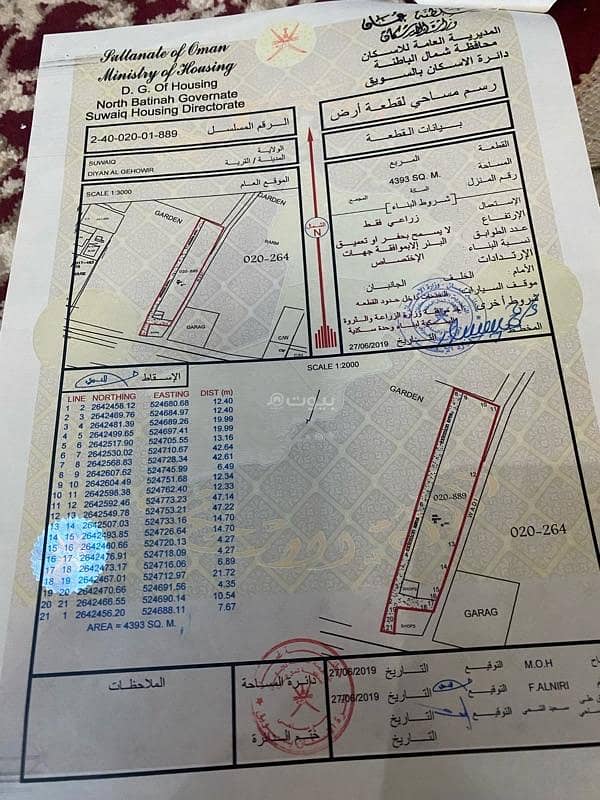 Sultanate of Oman
Ministry of Housing
D. G. Of Housing
North Batinah Governate
Suwaiq Housing Directorate
المديرية العامة للاسكان
محافظة شمال الباطنة
دائرة الاسكان بالسويق
2-40-020-01-889
الرقم المسلسل
رسم مساحي لقطعة أرض
بيانات القطعة
الولاية
SUWAIQ
المدينة / القرية
DIYAN AL GEHOWIR
الموقع العام
SCALE 1:3000
GARDEN
GARDEN
FARM
020-264
020-889
GARAG
N
القطعة
المربع
المساحة
4393 SQ. M.
رقم المنزل
السكة
المجمع
( شروط البناء )
الإستعمال
زراعي فقط
الإرتفاع
عدد الطوابق
لا يسمح بحفر او تعميق
نسبة البناء
البئر الابموافقة جهات
الإرتدادات
الإختصاص
الأمام
الخلف
الجانبان
موقف السيارات
داخل حدود القطعة
شروط أخرى
وزارة الزراعة والثروة
وحدة سكنية
التاريخ
27/06/2019
SCALE 1:2000
الإسقاط
LINE NORTHING EASTING DIST (m)
1 2 2642458.12 524680.68 12.40
2 3 2642469.76 524684.97 12.40
3 4 2642481.39 524689.26 19.99
4 5 2642499.65 524697.41 19.99
5 6 2642517.90 524705.55 13.16
6 7 2642530.02 524710.67 42.64
7 8 2642568.83 524728.34 42.61
8 9 2642607.62 524745.99 6.49
9 10 2642604.49 524751.68 12.34
10 11 2642598.38 524762.40 12.33
11 12 2642592.46 524773.23 47.14
12 13 2642549.78 524753.21 47.22
13 14 2642507.03 524733.16 14.70
14 15 2642493.85 524726.64 14.70
15 16 2642480.66 524720.13 4.27
16 17 2642476.91 524718.09 4.27
17 18 2642473.17 524716.06 6.89
18 19 2642467.01 524712.97 21.72
19 20 2642470.66 524691.56 4.35
20 21 2642466.55 524690.14 10.54
21 1 2642456.20 524688.11 7.67
AREA = 4393 SQ. M.
GARDEN
020-889
WADI
020-264
SHOPS
SHOPS
GARAG
بيوت
الملاحظات
دائرة المساحة
ختم الدائرة
27/06/2019
التاريخ
التوقيع
M.O.H
27/06/2019
التاريخ
التوقيع
F.ALNIRI
التاريخ
التوقيع
التاريخ